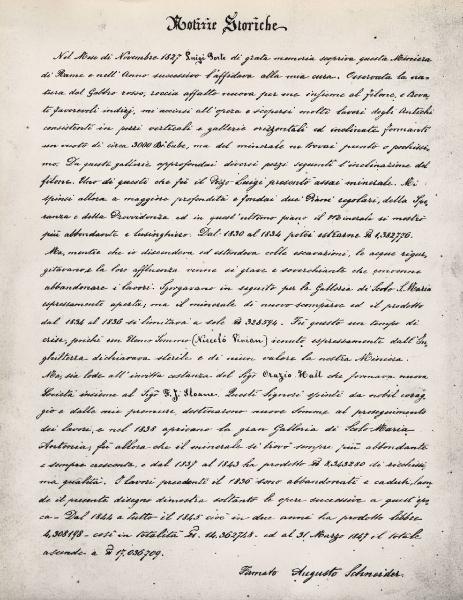 Notizie Storiche
Nel Mese di Novembre 1827 Luigi Porte di grata memoria scopriva questa Miniera
di Rame e nell'Anno successivo l'affidava alla mia cura. Osservata la
sura del Gabbro rosso, roccia affatto nuova per me insieme al filone, e trova
te favorevoli indizj, mi accinsi all'opera e scopersi molti lavori degli Antichi
consistenti in pozzi verticali e gallerie orizzontali ed inclinate formanti
un vuoto di circa 3000 B. Cube, ma del minerale ne trovai punto o pochissi-
mo. Da queste gallerie approfondai diversi pozzi seguendo l'inclinazione del
filone. Uno di questi che fù il Pozzo Luigi presentò assai minerale. Mi
spinsi allora a maggiore profondità e fondai due Piani regolari, della Spe-
ranza e della Provvidenza ed in quest'ultimo piano il Minerale si mostrò
più abbondante e lusinghiero. Dal 1830 al 1834 potei estrarne ℔ 1,382776.
Ma, mentre che io discendeva ed estendeva colle escavazioni, le acque rigur-
gitavano, e la loro affluenza venne sì grave e soverchiante che convenne
abbandonare i lavori. Sgorgavano in seguito per la Galleria di Scolo S. Maria
espressamente aperta; ma il minerale di nuovo scomparve ed il prodotto
dal 1834 al 1836 si limitava a sole ℔ 328594. Fù questo un tempo di
crise, poichè un Uomo Sommo (Niccolò Viviani) venuto espressamente dall'In-
ghilterra dichiarava sterile e di niun valore la nostra Miniera.
Ma, sia lode all'invitta costanza del Sigr Orazio Hall che formava nuova
Società insieme al Sigr F. J. Sloane. Questi Signori spinti da nobil corag-
gio e dalle mie premure, destinarono nuove Somme al proseguimento
dei lavori, e nel 1838 aprivano la gran Galleria di Scolo Maria
Antonia; fù allora che il minerale si trovò sempre più abbondante
e sempre crescente, e dal 1837 al 1843 ha prodotto ℔ di ricchissi-
ma qualità. I lavori precedenti il 1836 sono abbandonati e caduti, lau-
de il presente disegno dimostra soltanto le opere successive a quest'epo-
ca. Dal 1844 a tutto il 1845 cioè in due anni ha prodotto Libbre
4,308198 - così in totalità ℔. 14,362748 - ed al 31 Marzo 1847 il totale
ascende a ℔ 17,036709.
Firmato Augusto Schneider.